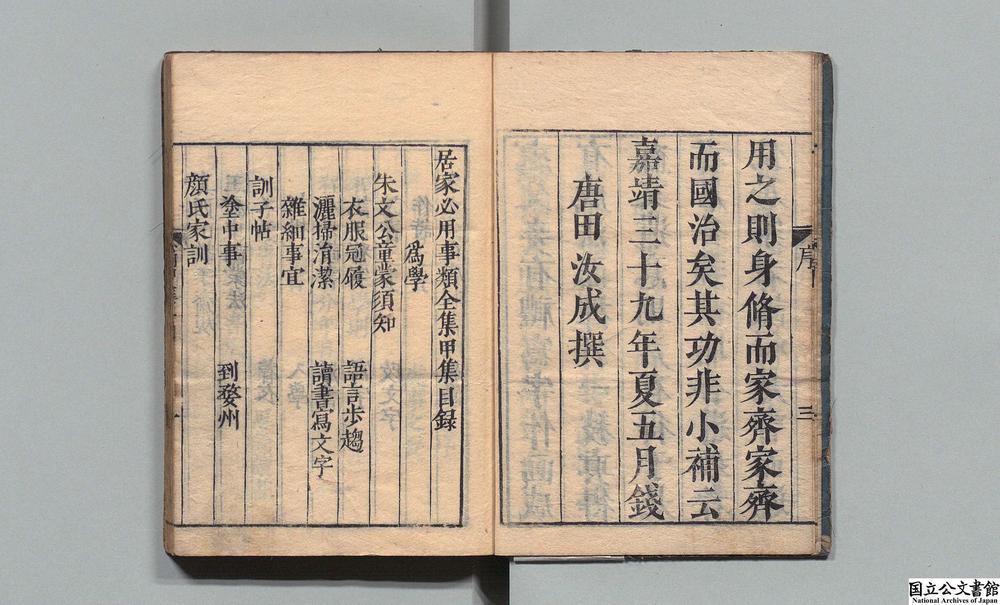 用之則身脩而家齊家齊
而國治矣其功非小補云
嘉靖三十九年夏五月錢
唐田汝成撰
序
三
居家必用事類全集甲集目録
爲學
朱文公童蒙須知
衣服冠履
語言歩趨
灑掃涓潔
讀書寫文字
雜細事宜
訓子帖
到婺州
顔氏家訓
国立公文書館
National Archives of Japan